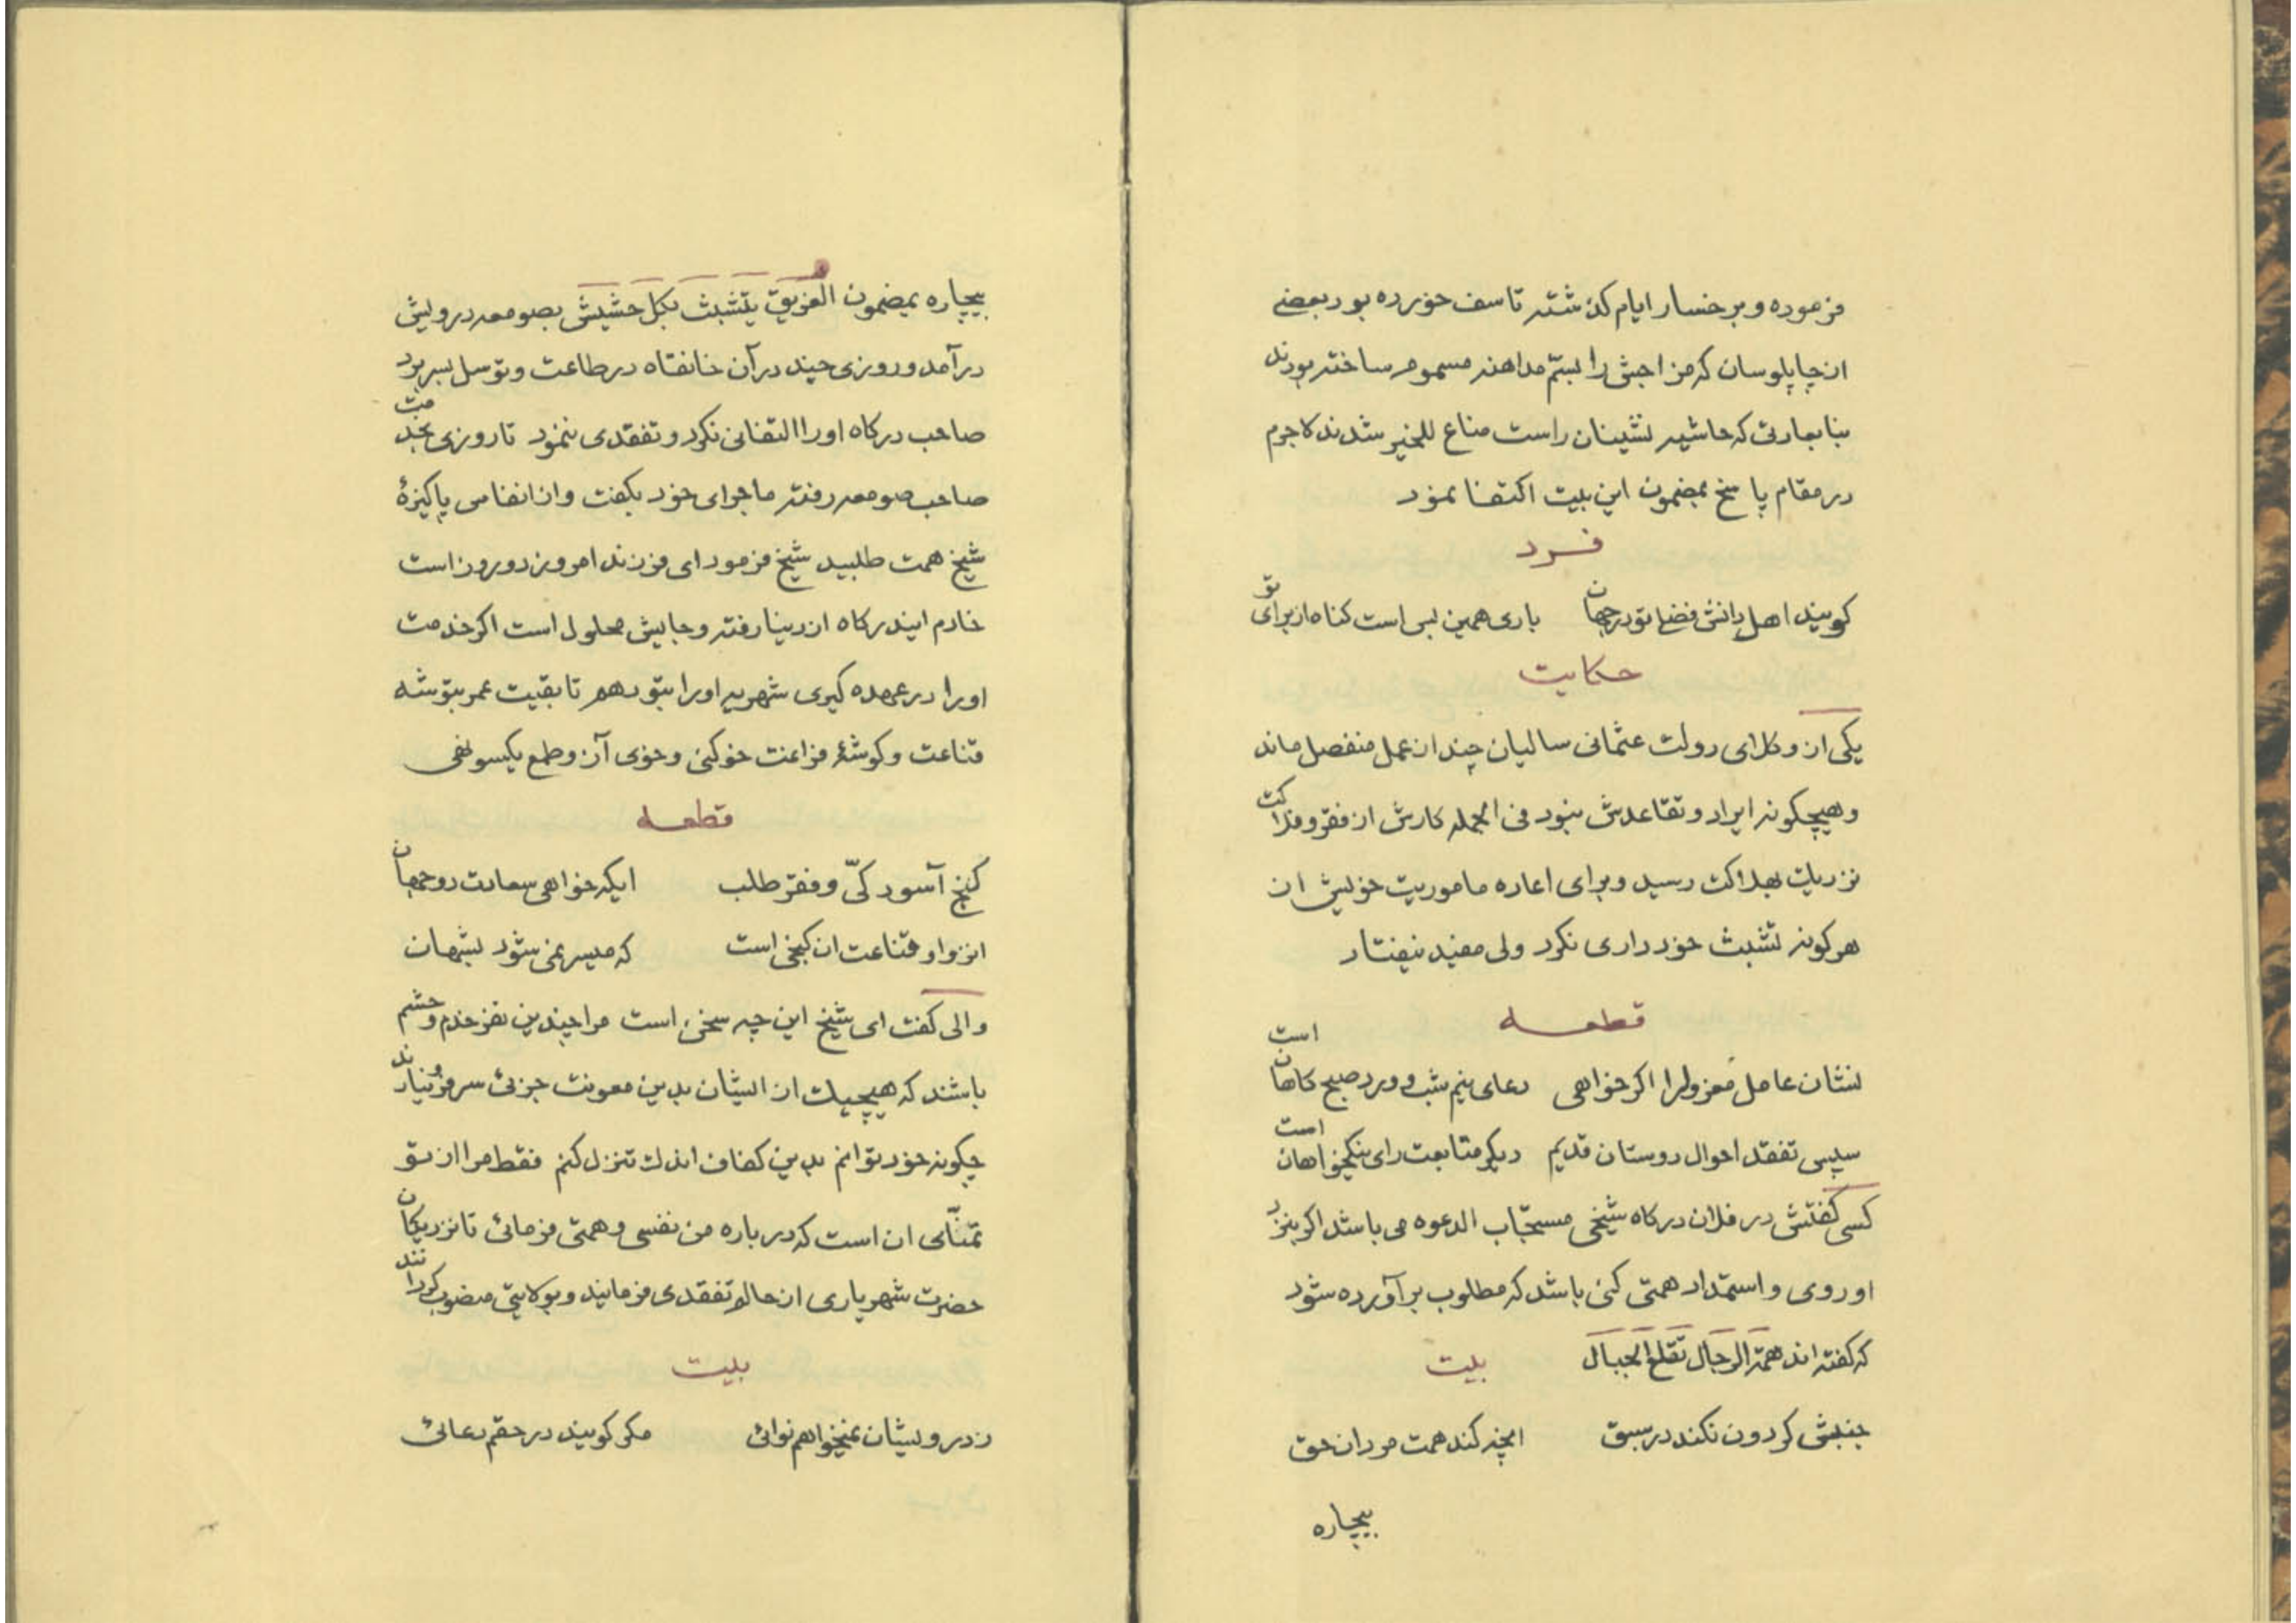 فرموده و بر خسار ایام کذشته تاسف خورده بود بعضے
از چاپلوسان که مزاجش را بسمّ مداهنه مسموم ساخته بودند
بنا بعادتی که حاشیه نشینان راست مناع للخیر شدند لاجرم
در مقام پاسخ بمضمون این بیت اکتفا نمود
فرد
کویند اهل دانش فضل تو در جهان باری همین بس است کناه از برای تو
حکایت
یکی از وکلای دولت عثمانی سالیان چند از عمل منفصل ماند
و هیچکونه ایراد و تقاعدش نبود فی الجمله کارش از فقر و فلاکت
نزدیک بهلاکت رسید و برای اعاده ماموریت خویش از
هر کونه تشبث خود داری نکرد ولی مفید نیفتاد
قطعه
نشان عامل معزولرا اکر خواهی دعای نیم شب و ورد صبح کاهان است
سپس تفقد احوال دوستان قدیم دیکر متابعت رای نیکخواهان است
کسی کفتش در فلان درکاه شیخی مستجاب الدعوه می باشد اکر بنزد
او روی و استمداد همتی کنی باشد که مطلوب برآورده شود
که کفته اند همة الرجال تقلع الجبال بیت
جنبش کردون نکند در سبق انچه کند همت مردان حق
بیچاره
بیچاره بمضمون الغریق یتشبث بکل حشیش بصومعه درویش
درآمد و روزی چند در آن خانقاه در طاعت و توسل بسر برد
صاحب درکاه او را التفاتی نکرد و تفقدی ننمود تا روزی بخدمت
صاحب صومعه رفته ماجرای خود بکفت و از انفاس پاکیزهٔ
شیخ همت طلبید شیخ فرمود ای فرزند امروز دو روز است
خادم ایندرکاه از دنیا رفته و جایش محلول است اکر خدمت
او را در عهده کیری شهریه او را بتو دهم تا بقیت عمر بتوشه
قناعت و کوشهٔ فراغت خو کنی و خوی آز و طمع یکسو نهی
قطعه
کنج آسودکیّ و فقر طلب ایکه خواهی سعادت دوجهان
انزوا و قناعت ان کنجی است که میسر نمی شود بشهان
والی کفت ای شیخ این چه سخن است مرا چندین نفر خدم و حشم
باشند که هیچیک از ایشان بدین معونت جزئی سر فرو نیارند
چکونه خود توانم بدین کفاف اندک تنزل کنم فقط مرا از تو
تمنّای ان است که درباره من نفسی و همتی فرمائی تا نزدیکان
حضرت شهریاری از حالم تفقدی فرمایند و بولایتی منصوب کردانند
بیت
ز درویشان نمیخواهم نوائی مکر کویند در حقم دعائی